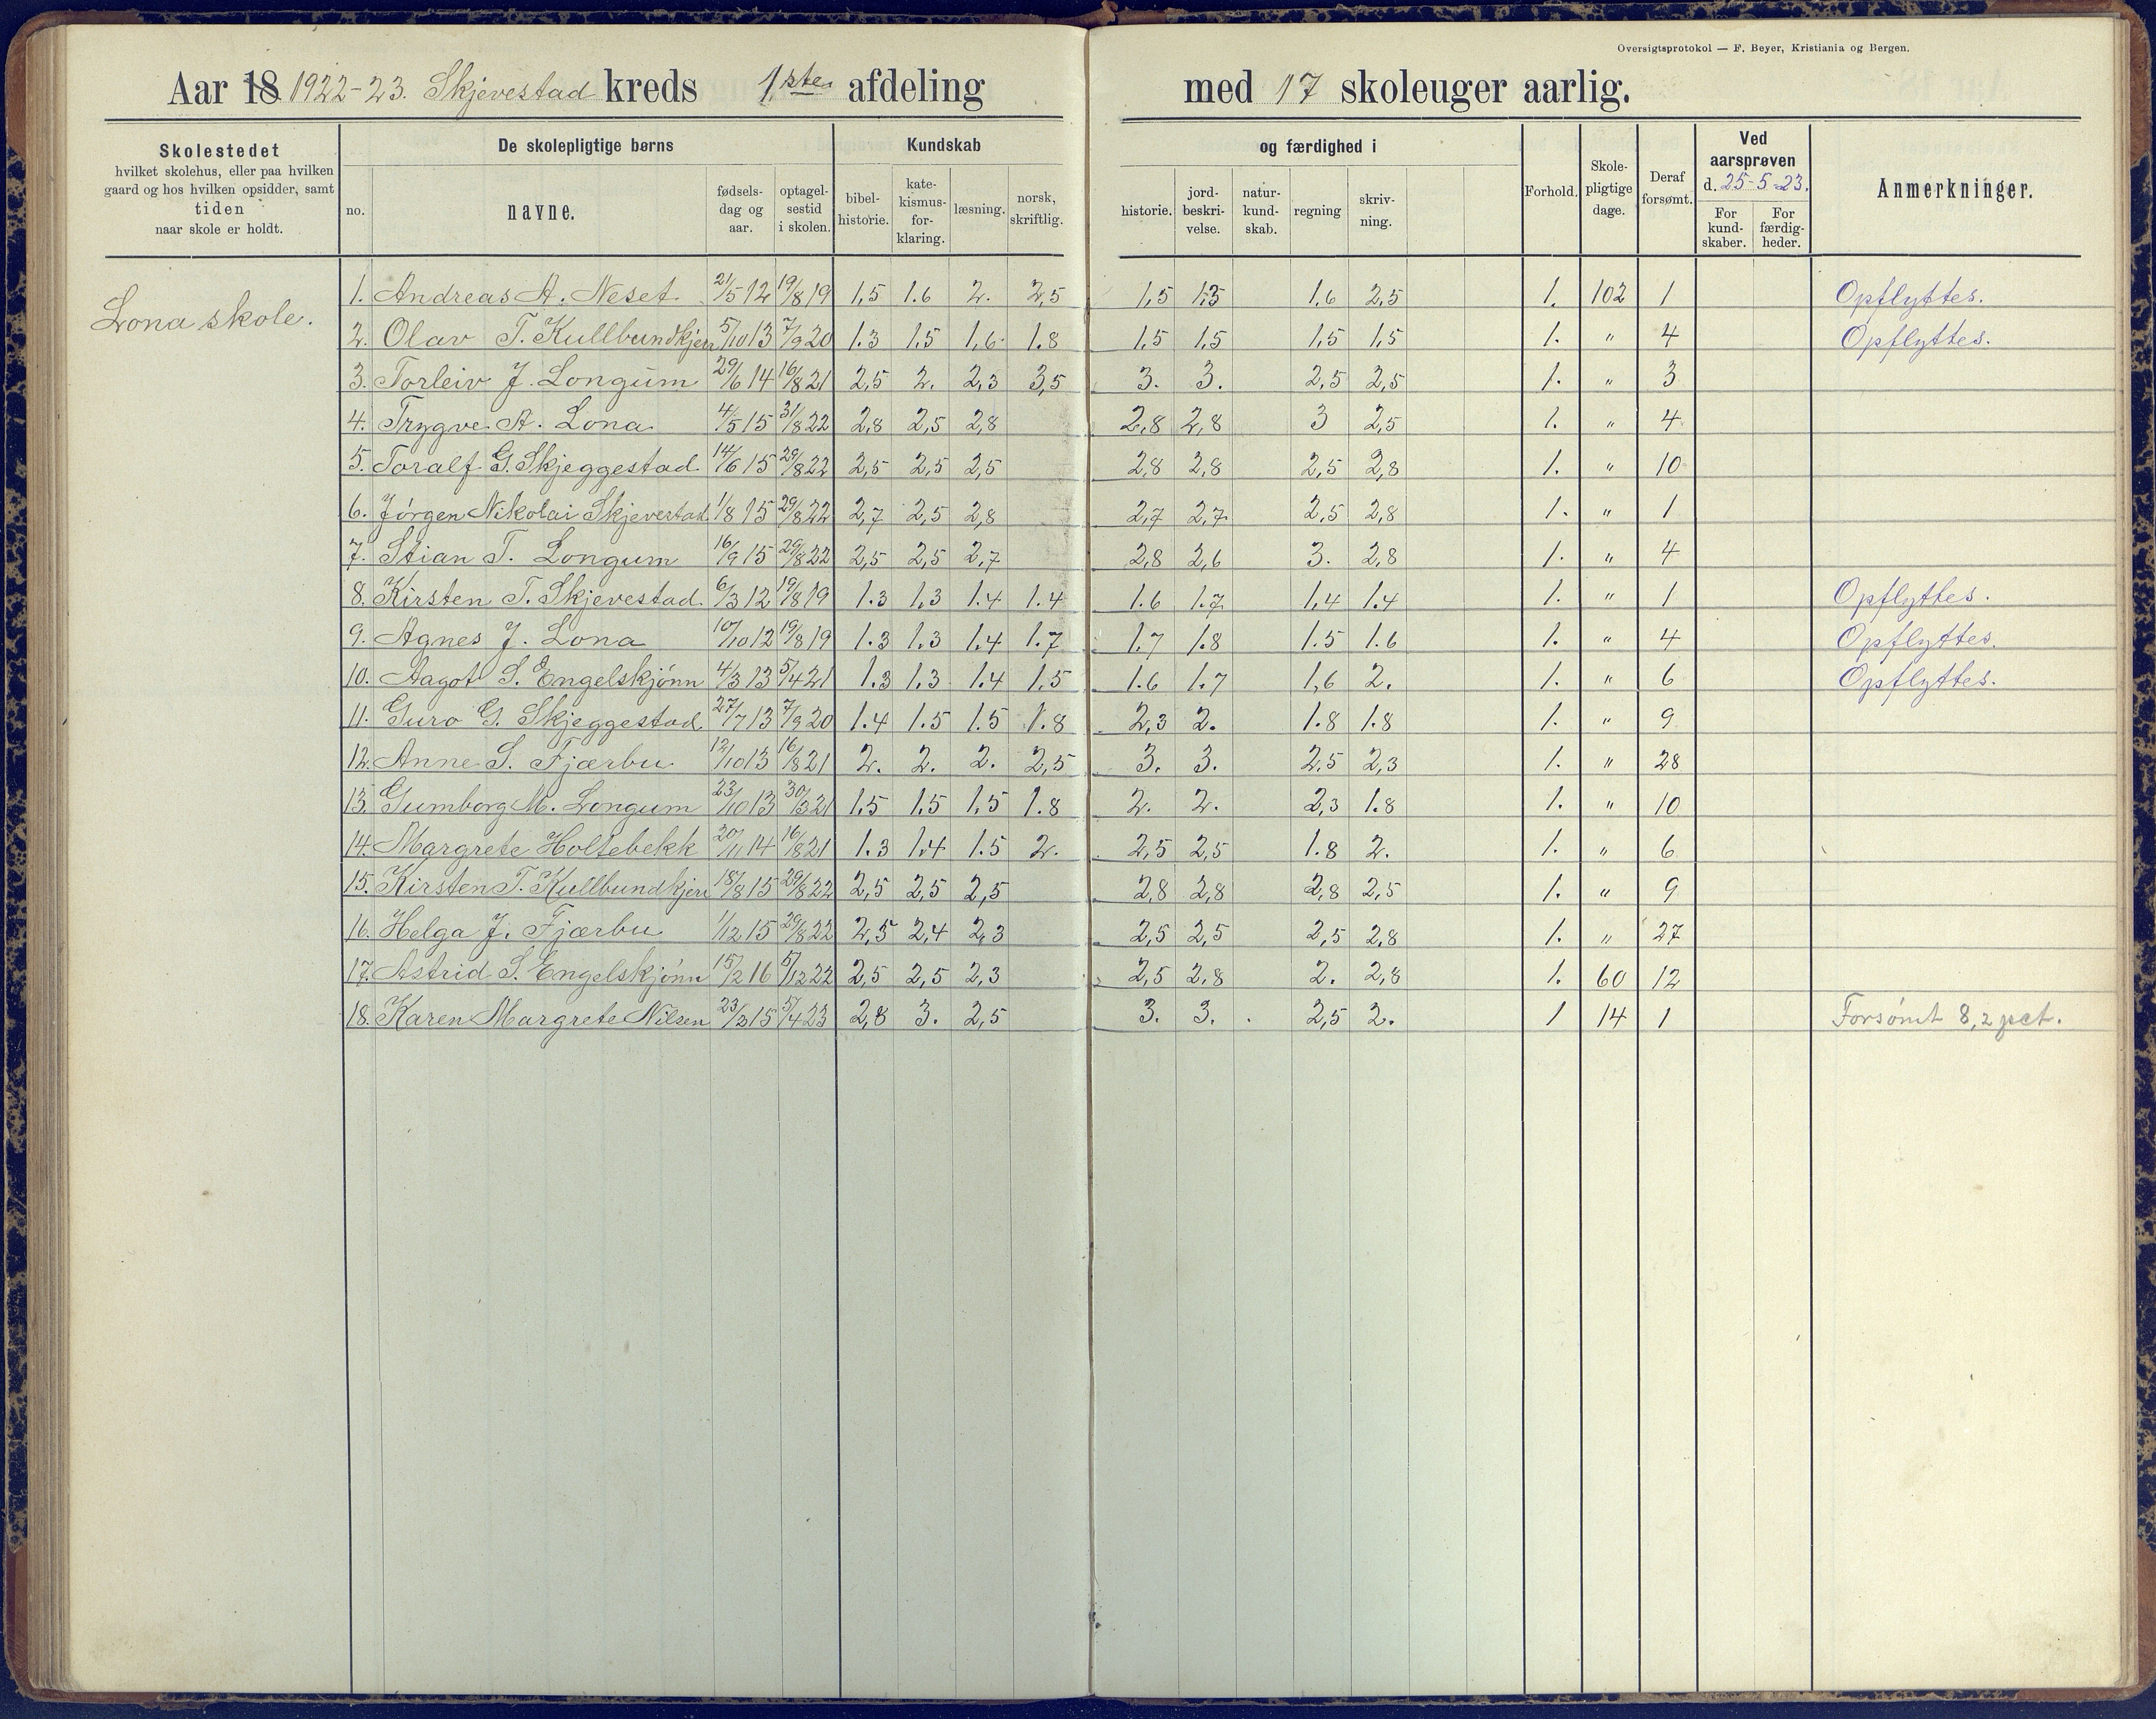 Oversigtsprotokol — F. Beyer, Kristiania og Bergen.
Aar 18 1922-23. Skjevestad kreds 1ste afdeling med 17 skoleuger aarlig.
Skolestedet hvilket skolehus, eller paa hvilken gaard og hos hvilken opsidder, samt tiden naar skole er holdt.
De skolepligtige børns
no. navne. fødsels-dag og aar. optagel-sestid i skolen.
Kundskab og færdighed i
bibel-historie. kate-kismus-for-klaring. læsning. norsk, skriftlig. historie. jord-beskri-velse. natur-kund-skab. regning skriv-ning.
Forhold. Skole-pligtige dage. Deraf forsømt.
Ved aarsprøven d. 25-5-23.
For kund-skaber. For færdig-heder.
Anmerkninger.
Lona skole.
1. Andreas A. Neset 21/5 12 19/8 19 1,5 1.6 2. 2,5 1,5 1.5 1.6 2,5 1. 102 1 Opflyttes.
2. Olav T. Kullbundkjern 5/10 13 7/9 20 1.3 1,5 1,6 1.8 1,5 1,5 1,5 1,5 1. " 4 Opflyttes.
3. Torleiv J. Longum 29/6 14 16/8 21 2,5 2. 2,3 3,5 3. 3. 2,5 2,5 1. " 3
4. Trygve A. Lona 4/5 15 31/8 22 2,8 2,5 2,8 2,8 2,8 3 2,5 1. " 4
5. Toralf G. Skjeggestad 14/6 15 29/8 22 2,5 2,5 2,5 2,8 2,8 2,5 2,8 1. " 10
6. Jørgen Nikolai Skjevestad 1/8 15 29/8 22 2,7 2,5 2,8 2,7 2,7 2,5 2,8 1. " 1
7. Stian T. Longum 16/9 15 29/8 22 2,5 2,5 2,7 2,8 2,6 3. 2,8 1. " 4
8. Kirsten T. Skjevestad 6/3 12 19/8 19 1.3 1.3 1.4 1.4 1.6 1.7 1,4 1.4 1. " 1 Opflyttes.
9. Agnes J. Lona 10/10 12 19/8 19 1.3 1.3 1.4 1.7 1.7 1.8 1.5 1.6 1. " 4 Opflyttes.
10. Aagot S. Engelskjønn 4/3 13 5/4 21 1.3 1.3 1.4 1.5 1.6 1.7 1,6 2. 1. " 6 Opflyttes.
11. Guro G. Skjeggestad 27/7 13 7/9 20 1.4 1.5 1.5 1.8 2,3 2. 1.8 1.8 1. " 9
12. Anne S. Fjærbu 12/10 13 16/8 21 2. 2. 2. 2,5 3. 3. 2,5 2,3 1. " 28
13. Gumborg M. Longum 23/10 13 30/3 21 1,5 1,5 1,5 1.8 2. 2. 2,3 1.8 1. " 10
14. Margrete Holtebekk 20/11 14 16/8 21 1.3 1.4 1.5 2. 2,5 2,5 1.8 2. 1. " 6
15. Kirsten T. Kullbundkjern 18/8 15 29/8 22 2,5 2,5 2,5 2,8 2,8 2,8 2,5 1. " 9
16. Helga J. Fjærbu 1/12 15 29/8 22 2,5 2,4 2,3 2,5 2,5 2,5 2,8 1. " 27
17. Astrid S. Engelskjønn 15/2 16 5/12 22 2,5 2,5 2,3 2,5 2,8 2. 2,8 1. 60 12
18. Karen Margrete Nilsen 23/3 15 5/4 23 2,8 3. 2,5 3. 3. 2,5 2. 1 14 1 Forsømt 8,2 pct.